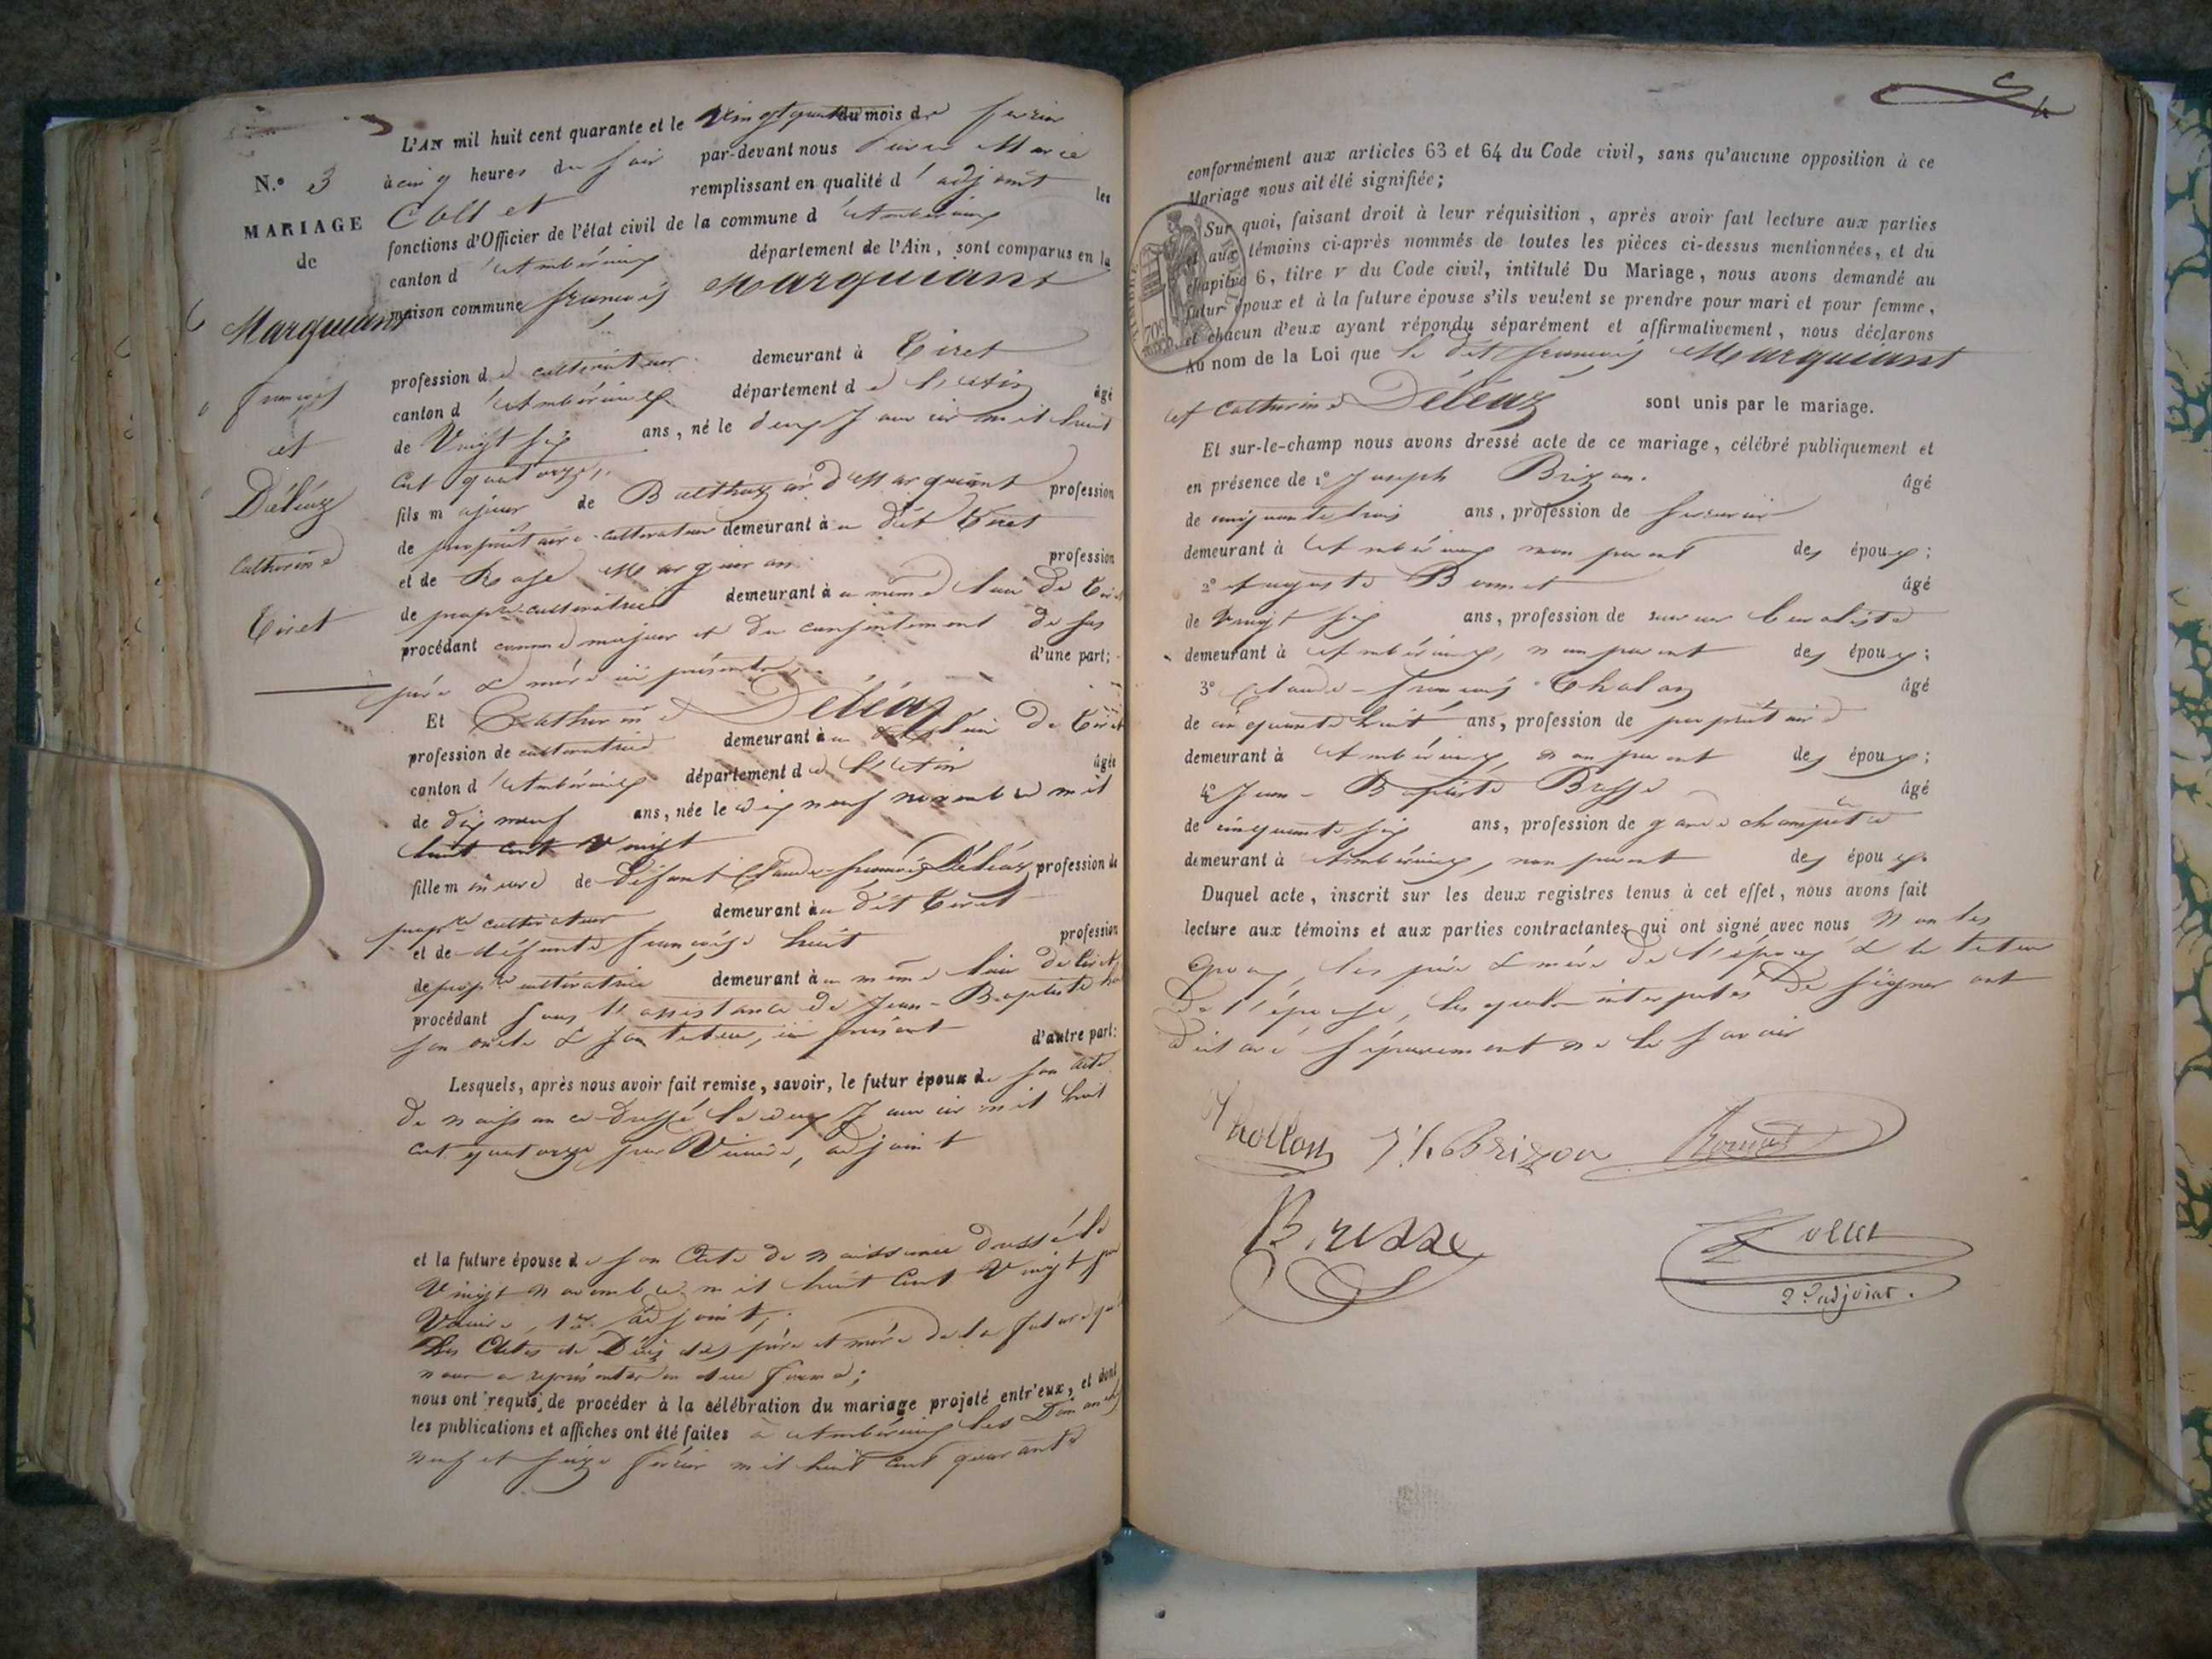 N.º 3
MARIAGE
de
Marquiant
françois
et
Déléaz
Catherine
Tiret
L'AN mil huit cent quarante et le vingt quatre du mois de février
à cinq heures du soir par-devant nous Pierre Marie
Collet remplissant en qualité d'adjoint les
fonctions d'Officier de l'état civil de la commune d'Ambérieux
canton d'Ambérieux département de l'Ain, sont comparus en la
maison commune françois Marquiant
profession de cultivateur demeurant à Tiret
canton d'Ambérieux département de l'Ain âgé
de Vingt six ans, né le deux Janvier mil huit
cent quatorze,
fils majeur de Balthazard Marquiant profession
de propriétaire-cultivateur demeurant au dit Tiret
et de Rose Marquiant profession
de propre-cultivatrice demeurant au même lieu de Tiret
procédant comme majeur et du consentement de ses
père & mère ici présents d'une part;
Et Catherine Déléaz
profession de cultivatrice demeurant au lieu de Tiret
canton d'Ambérieux département de l'Ain âgée
de dix neuf ans, née le dix neuf novembre mil
huit cent vingt
fille mineure de défunt Claude-françois Déléaz profession de
propre cultivateur demeurant au dit Tiret
et de défunte françoise huit profession
de propre cultivatrice demeurant au même lieu de Tiret
procédant sous l'assistance de Jean-Baptiste
son oncle & son tuteur, ici présent d'autre part:
Lesquels, après nous avoir fait remise, savoir, le futur époux de son acte
de naissance dressé le deux Janvier mil huit
cent quatorze par adjoint
et la future épouse de son Acte de naissance dressé le
Vingt novembre mil huit cent Vingt par
1er adjoint;
Les Actes de Décès des père et mère de la future
représenter en due forme;
nous ont requis de procéder à la célébration du mariage projeté entr'eux, et dont
les publications et affiches ont été faites à Ambérieux les Dimanches
neuf et seize février mil huit cent quarante
conformément aux articles 63 et 64 du Code civil, sans qu'aucune opposition à ce
Mariage nous ait été signifiée;
Sur quoi, faisant droit à leur réquisition, après avoir fait lecture aux parties
et aux témoins ci-après nommés de toutes les pièces ci-dessus mentionnées, et du
chapitre 6, titre v du Code civil, intitulé Du Mariage, nous avons demandé au
futur époux et à la future épouse s'ils veulent se prendre pour mari et pour femme,
et chacun d'eux ayant répondu séparément et affirmativement, nous déclarons
Au nom de la Loi que le dit françois Marquiant
et Catherine Déléaz sont unis par le mariage.
Et sur-le-champ nous avons dressé acte de ce mariage, célébré publiquement et
en présence de 1º Joseph Brizon. âgé
de cinquante trois ans, profession de serrurier
demeurant à Ambérieux non parent des époux;
2º Auguste Bonnet âgé
de Vingt six ans, profession de
demeurant à Ambérieux, non parent des époux;
3º Claude-françois Tholon âgé
de cinquante huit ans, profession de propriétaire
demeurant à Ambérieux, non parent des époux;
4º Jean-Baptiste Bresse âgé
de cinquante six ans, profession de garde champêtre
demeurant à Ambérieux, non parent des époux.
Duquel acte, inscrit sur les deux registres tenus à cet effet, nous avons fait
lecture aux témoins et aux parties contractantes qui ont signé avec nous, non les
époux, les père & mère de l'époux & le tuteur
de l'épouse, lesquels interpellés de signer ont
déclaré séparément ne le savoir
Thollon Jh Brizon Bonnet
Bresse Collet
2e adjoint.